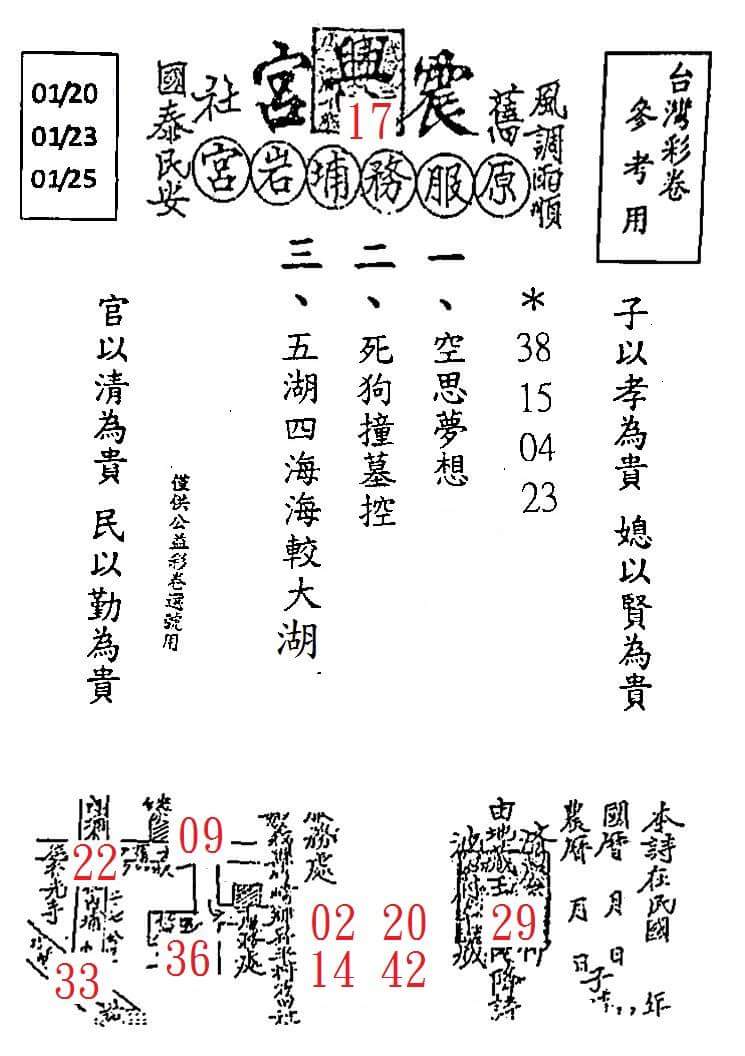 台灣彩卷
參考用
風調雨順
舊
震興宮
17
社
國泰民安
原服務埔岩宮
01/20
01/23
01/25
子以孝為貴 媳以賢為貴
*
38
15
04
23
一、空思夢想
二、死狗撞墓控
三、五湖四海海較大湖
僅供公益彩卷選號用
官以清為貴 民以勤為貴
本詩在民國 年
國曆 月 日
農曆 月 日
由地藏王
降詩
29
服務處
02 20
14 42
09
22
36
33